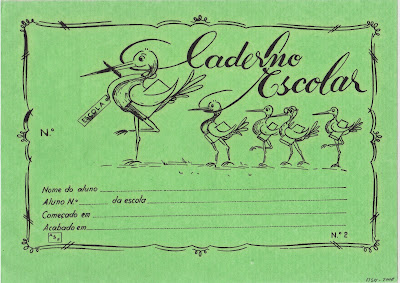 Caderno
Escolar
ESCOLA
N.º
Nome do aluno
Aluno N.º da escola
Começado em
Acabado em
N.º 2